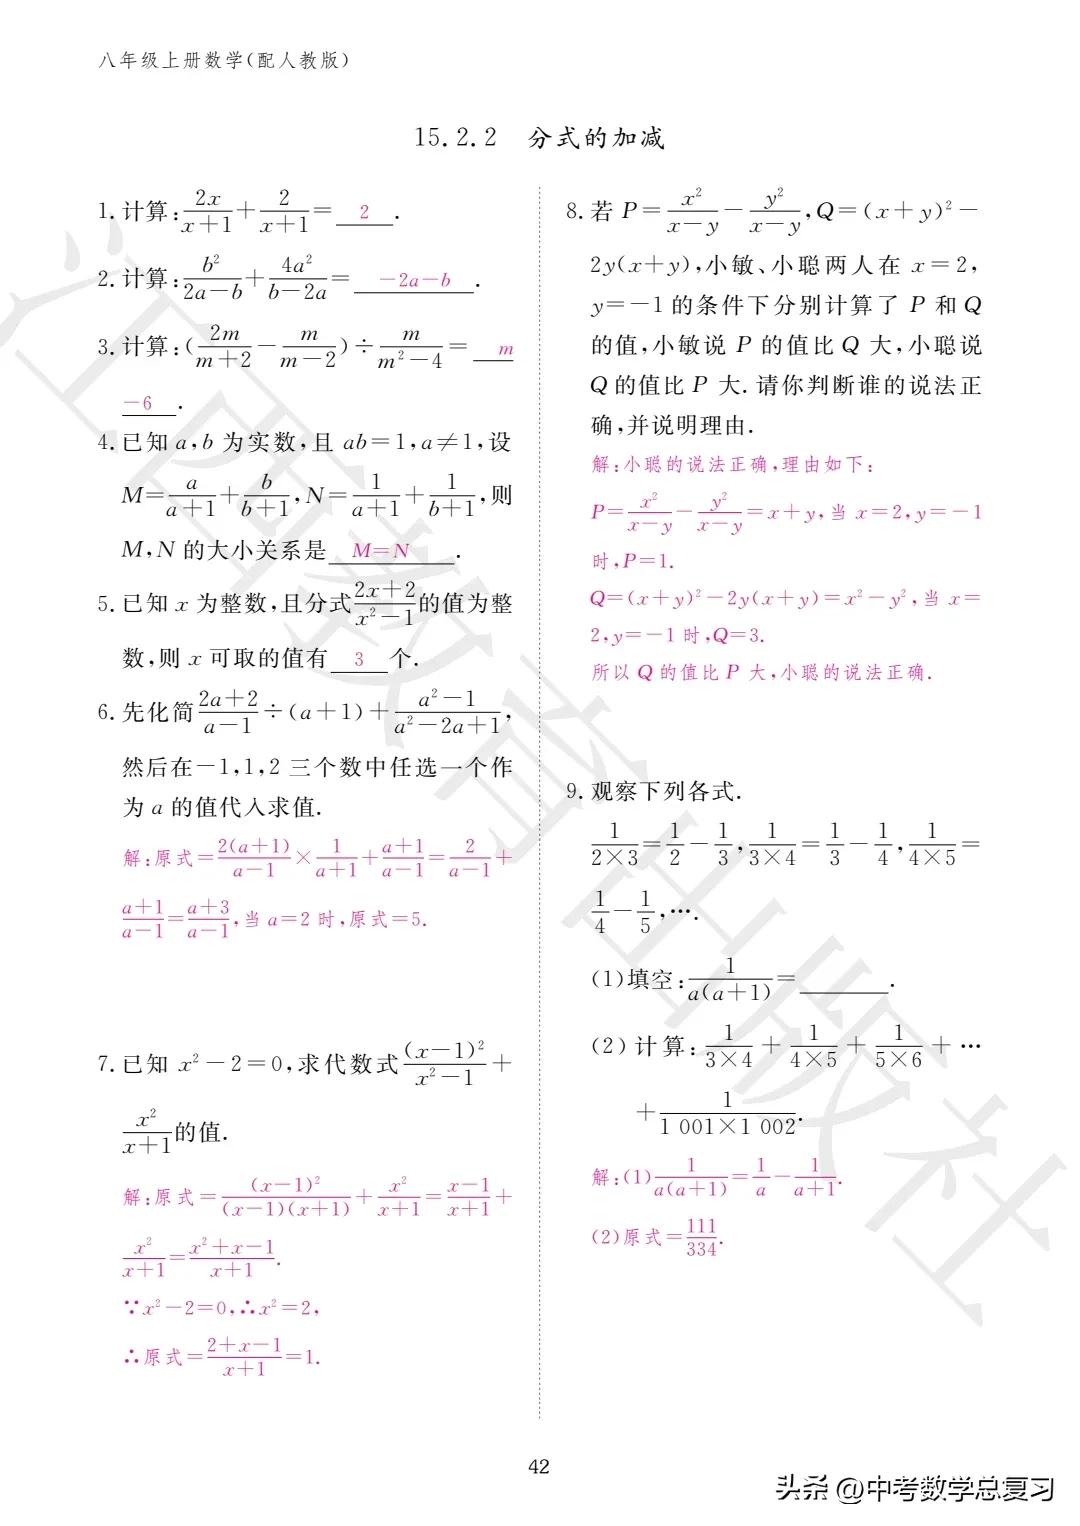 八年级上册数学(配人教版)
15.2.2 分式的加减
1. 计算:$\frac{2x}{x+1}+\frac{2}{x+1}=$ 2 .
2. 计算:$\frac{b^2}{2a-b}+\frac{4a^2}{b-2a}=$ -2a-b .
3. 计算:$(\frac{2m}{m+2}-\frac{m}{m-2})÷\frac{m}{m^2-4}=$ m
-6 .
4. 已知 a,b 为实数,且 ab=1,a≠1,设
$M=\frac{a}{a+1}+\frac{b}{b+1},N=\frac{1}{a+1}+\frac{1}{b+1}$,则
M,N 的大小关系是 M=N .
5. 已知 x 为整数,且分式$\frac{2x+2}{x^2-1}$的值为整
数,则 x 可取的值有 3 个.
6. 先化简$\frac{2a+2}{a-1}÷(a+1)+\frac{a^2-1}{a^2-2a+1}$,
然后在-1,1,2 三个数中任选一个作
为 a 的值代入求值.
解:原式=$\frac{2(a+1)}{a-1}×\frac{1}{a+1}+\frac{a+1}{a-1}=\frac{2}{a-1}+$
$\frac{a+1}{a-1}=\frac{a+3}{a-1}$,当 a=2 时,原式=5.
7. 已知 $x^2-2=0$,求代数式$\frac{(x-1)^2}{x^2-1}+$
$\frac{x^2}{x+1}$的值.
解:原式=$\frac{(x-1)^2}{(x-1)(x+1)}+\frac{x^2}{x+1}=\frac{x-1}{x+1}+$
$\frac{x^2}{x+1}=\frac{x^2+x-1}{x+1}$.
∵$x^2-2=0$,∴$x^2=2$,
∴原式=$\frac{2+x-1}{x+1}=1$.
8. 若 $P=\frac{x^2}{x-y}-\frac{y^2}{x-y},Q=(x+y)^2-$
2y(x+y),小敏、小聪两人在 x=2,
y=-1 的条件下分别计算了 P 和 Q
的值,小敏说 P 的值比 Q 大,小聪说
Q 的值比 P 大. 请你判断谁的说法正
确,并说明理由.
解:小聪的说法正确,理由如下:
$P=\frac{x^2}{x-y}-\frac{y^2}{x-y}=x+y$,当 x=2,y=-1
时,P=1.
$Q=(x+y)^2-2y(x+y)=x^2-y^2$,当 x=
2,y=-1 时,Q=3.
所以 Q 的值比 P 大,小聪的说法正确.
9. 观察下列各式.
$\frac{1}{2×3}=\frac{1}{2}-\frac{1}{3},\frac{1}{3×4}=\frac{1}{3}-\frac{1}{4},\frac{1}{4×5}=$
$\frac{1}{4}-\frac{1}{5}$,….
(1)填空:$\frac{1}{a(a+1)}=$________.
(2)计算:$\frac{1}{3×4}+\frac{1}{4×5}+\frac{1}{5×6}+…$
$+\frac{1}{1 001×1 002}$.
解:(1)$\frac{1}{a(a+1)}=\frac{1}{a}-\frac{1}{a+1}$.
(2)原式=$\frac{111}{334}$.
42
江西教育出版社
头条 @中考数学总复习